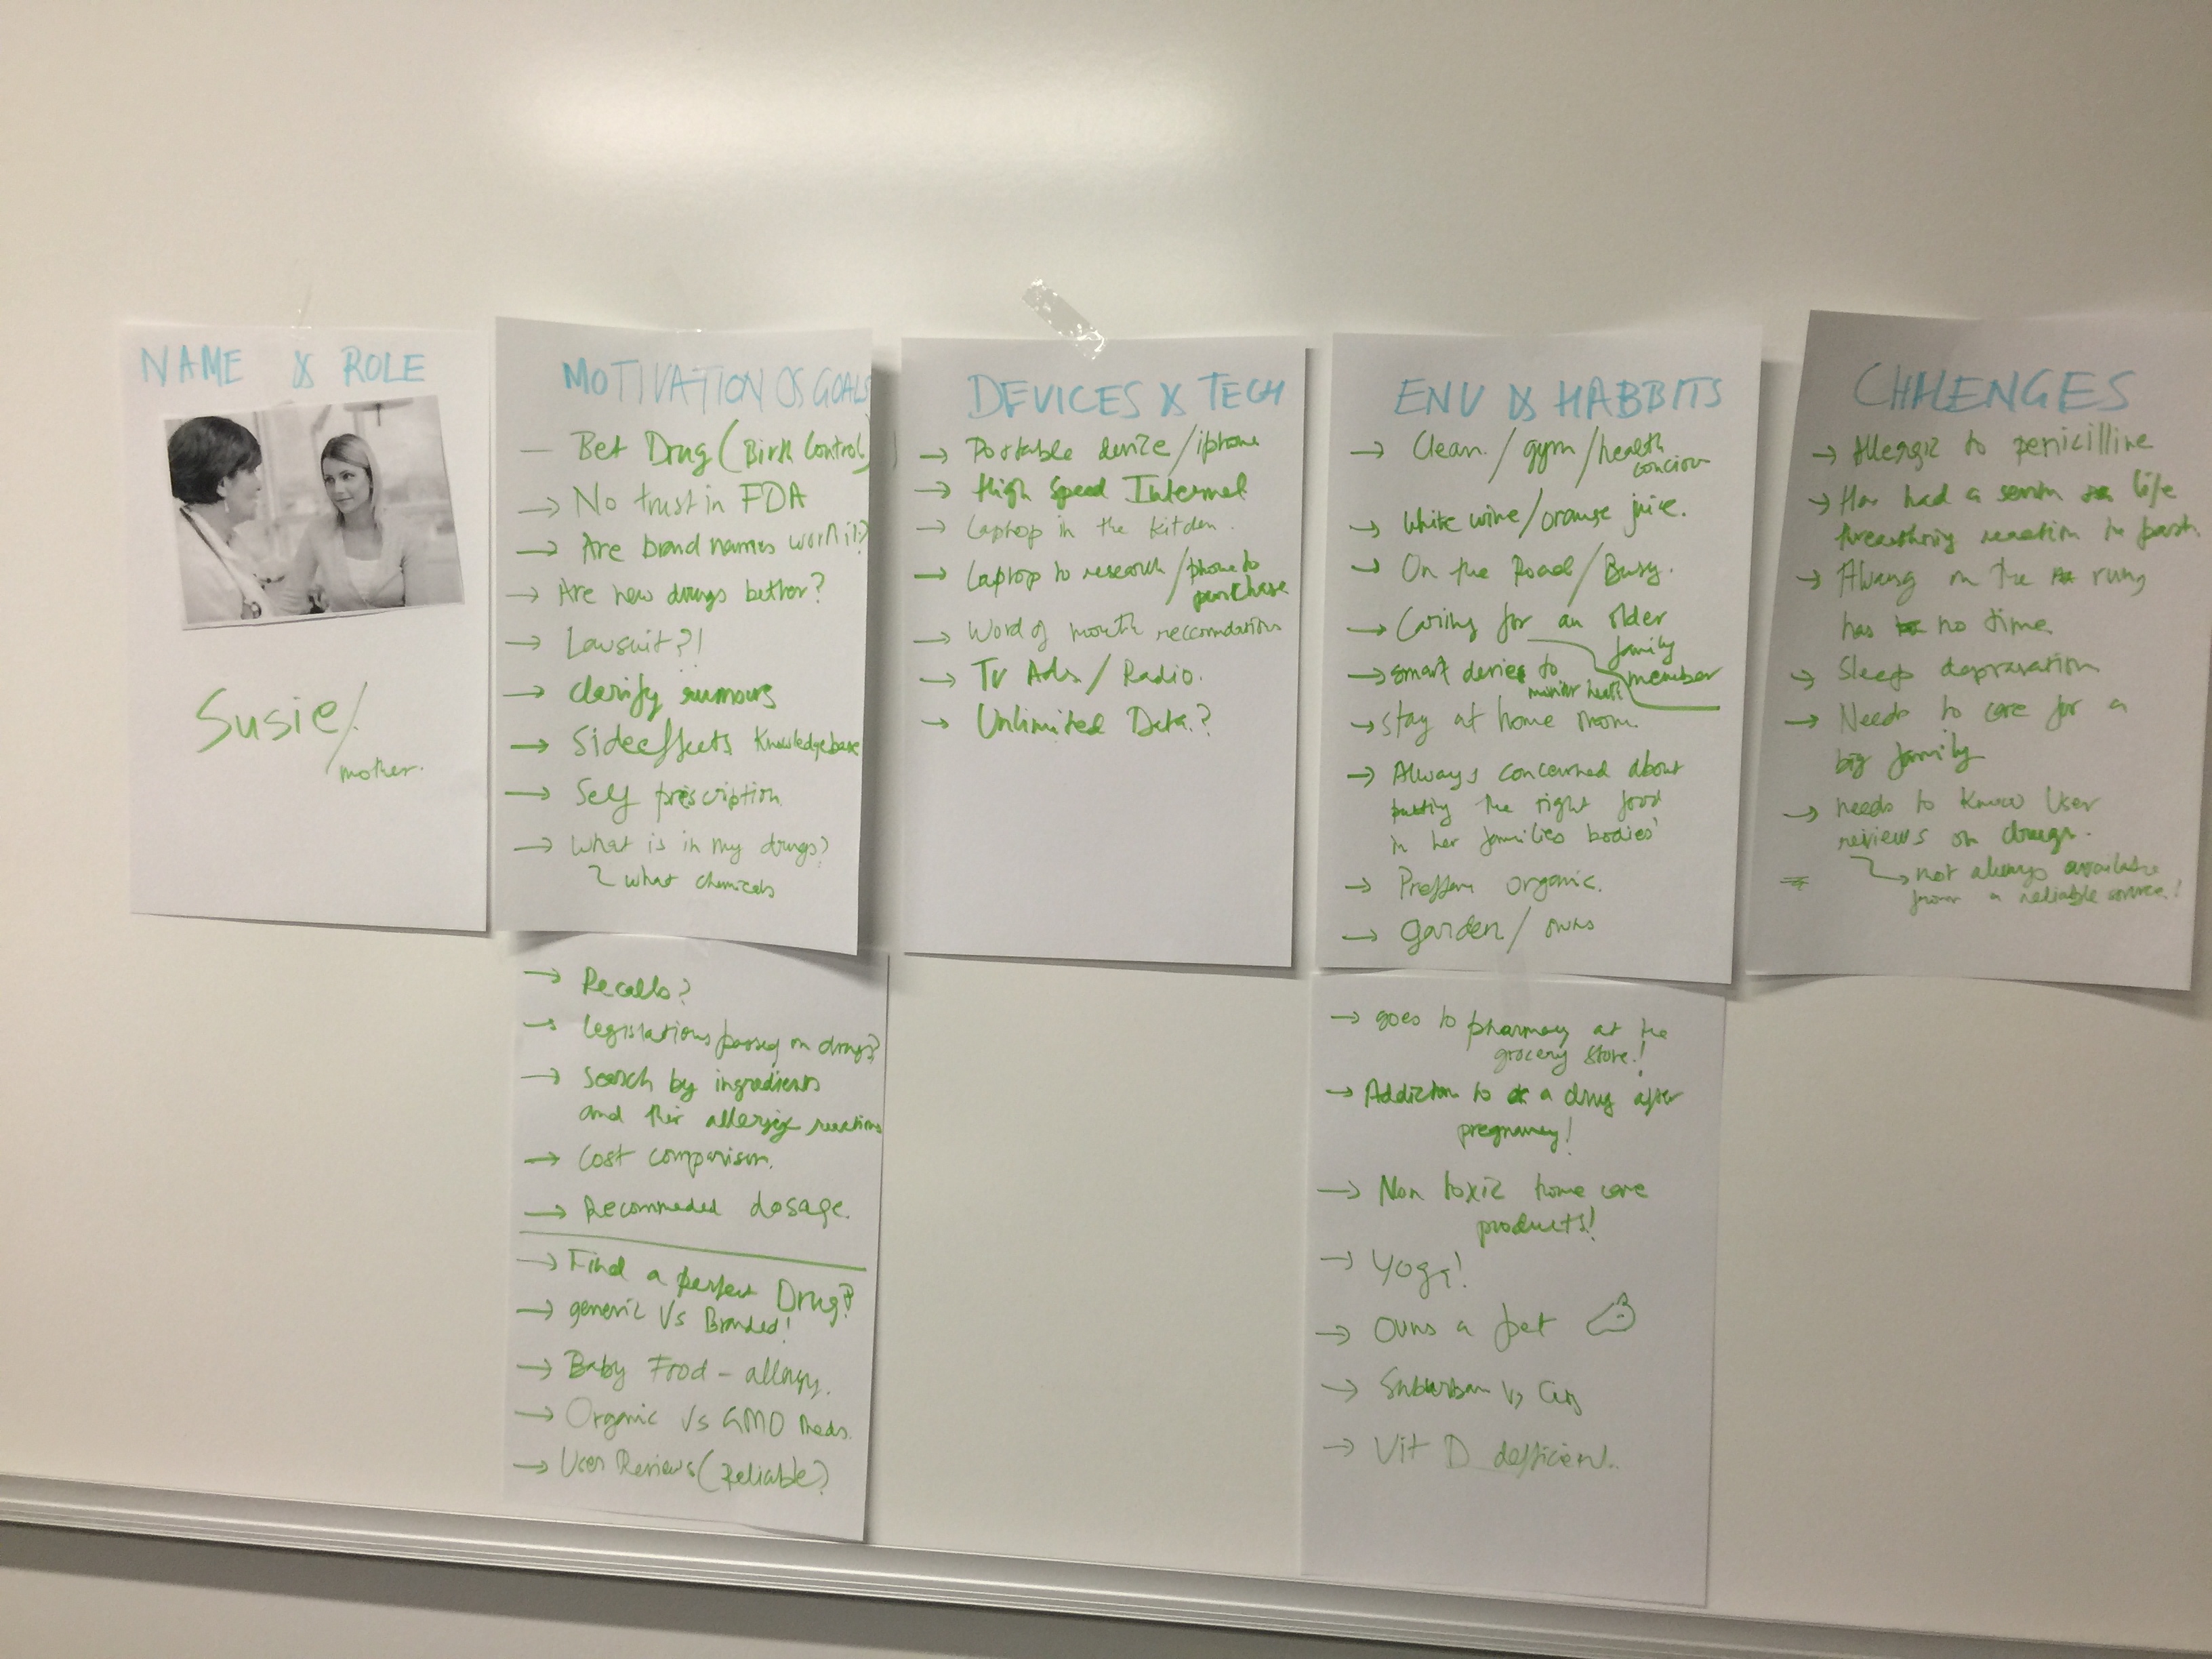 NAME & ROLE
Susie/
mother.
MOTIVATION & GOALS
— Bet Drug (Birth Control)
→ No trust in FDA
→ Are brand names worth it?
→ Are new drugs better?
→ Lawsuit?!
→ clarify rumours
→ Sideeffects Knowledgebase
→ Self prescription
→ What is in my drugs?
what chemicals
→ Recalls?
→ legislations passed on drugs?
→ Search by ingredients
and their allergic reactions
→ Cost comparison.
→ Recommeded dosage.
→ Find a perfect Drug?
→ generic Vs Branded!
→ Baby Food - allergy.
→ Organic Vs GMO meds.
→ User Reviews (Reliable?)
DEVICES & TECH
→ Portable device/iphone
→ High Speed Internet
→ Laptop in the kitchen.
→ Laptop to research/phone to
purchase
→ Word of mouth
→ Tv Ads / Radio.
→ Unlimited Data?
ENV & HABBITS
→ Clean / gym / health
concious
→ White wine/orange juice.
→ On the Road / Busy.
→ Caring for an older
family
member
→ smart device to
monitor health
→ stay at home mom.
→ Always concerned about
putting the right food
in her families bodies'
→ organic.
→ garden / owns
→ goes to pharmacy at the
grocery store!
→ Addiction to a drug after
pregnancy!
→ Non toxic home care
products!
→ Yoga!
→ Owns a pet
→ Suburban Vs City
→ Vit D defficient..
CHALENGES
→ Allergic to penicilline
→ Has had a life
threatning reaction in past.
→ Always on the run,
has no time.
→ Sleep depravation
→ Needs to care for a
big family
→ needs to know User
reviews on drugs.
→ not always available
from a reliable source!